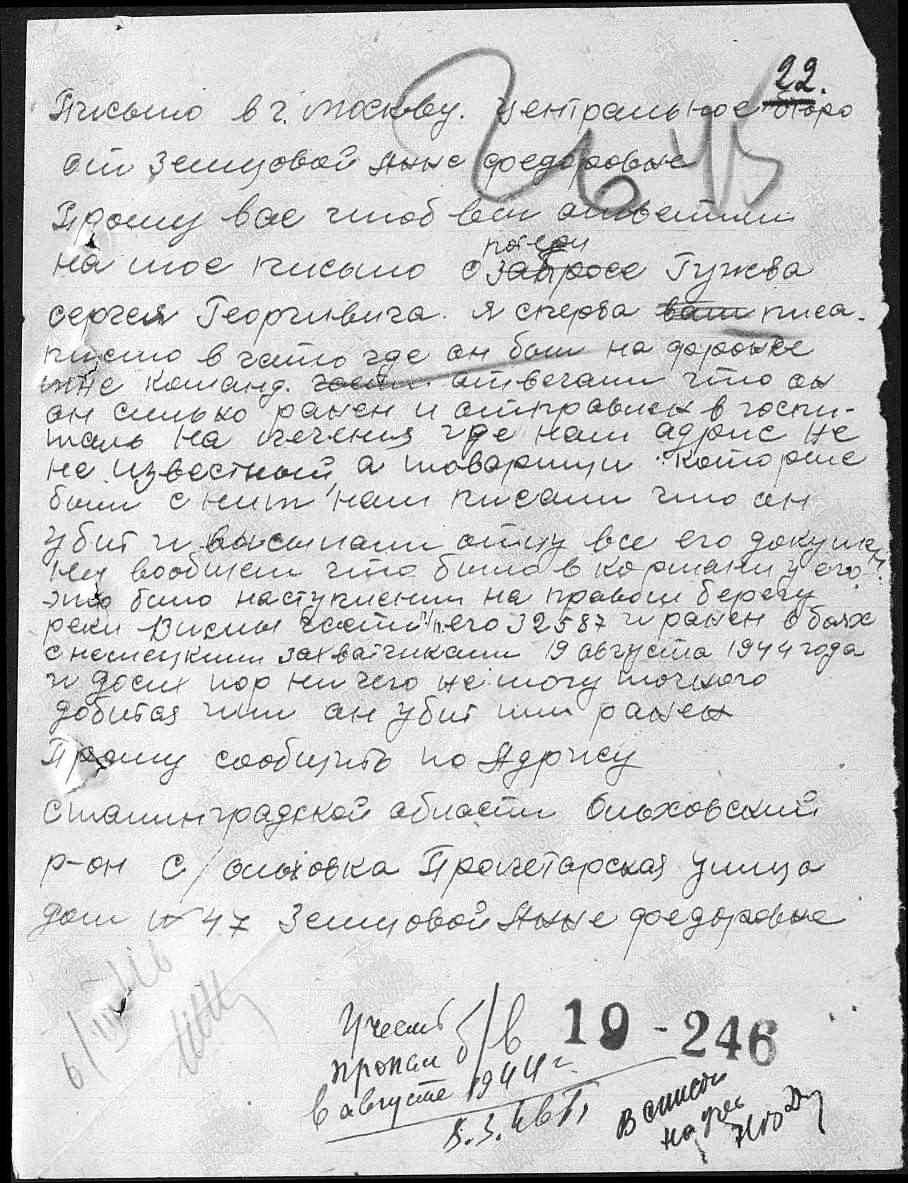 22.
Письмо в г. Москву. Центральное бюро
от Земцовой Анне Федоровне
Прошу вас чтоб вы ответили
на мое письмо о розыске Гужева
потери
Сергея Георгивича. Я сперва вам писа.
писмо в часть где он был на фоне
мне команд. части. отвечали что он
он сильно ранен и отправлен в госпи-
таль на лечения где нам адрис не
не известный а товарищи которые
были с ним нам писали что он
убит и высылали отцу все его докумен
ты вообщем что было в кормани у его
это было наступлении на правом берегу
реки Вислы части п/п его 32587 и ранен в боях
с немецкими захватчиками 19 августа 1944 года
и до сих пор ни чего не могу точного
добится или он убит или ранен
Прошу сообщить по Адрису
Сталинградской области Ольховский
р-он с/Ольховка Пролетарская улица
дом № 47 Земцовой Анне Федоровне
6/III-46
Учесть
пропал б/в
в августе 1944 г.
19-246
В список